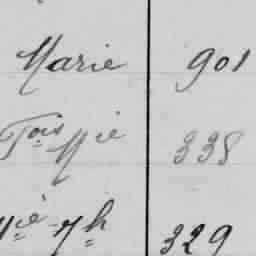 Marie 901
Fois Mie 338
Mie-Th 329